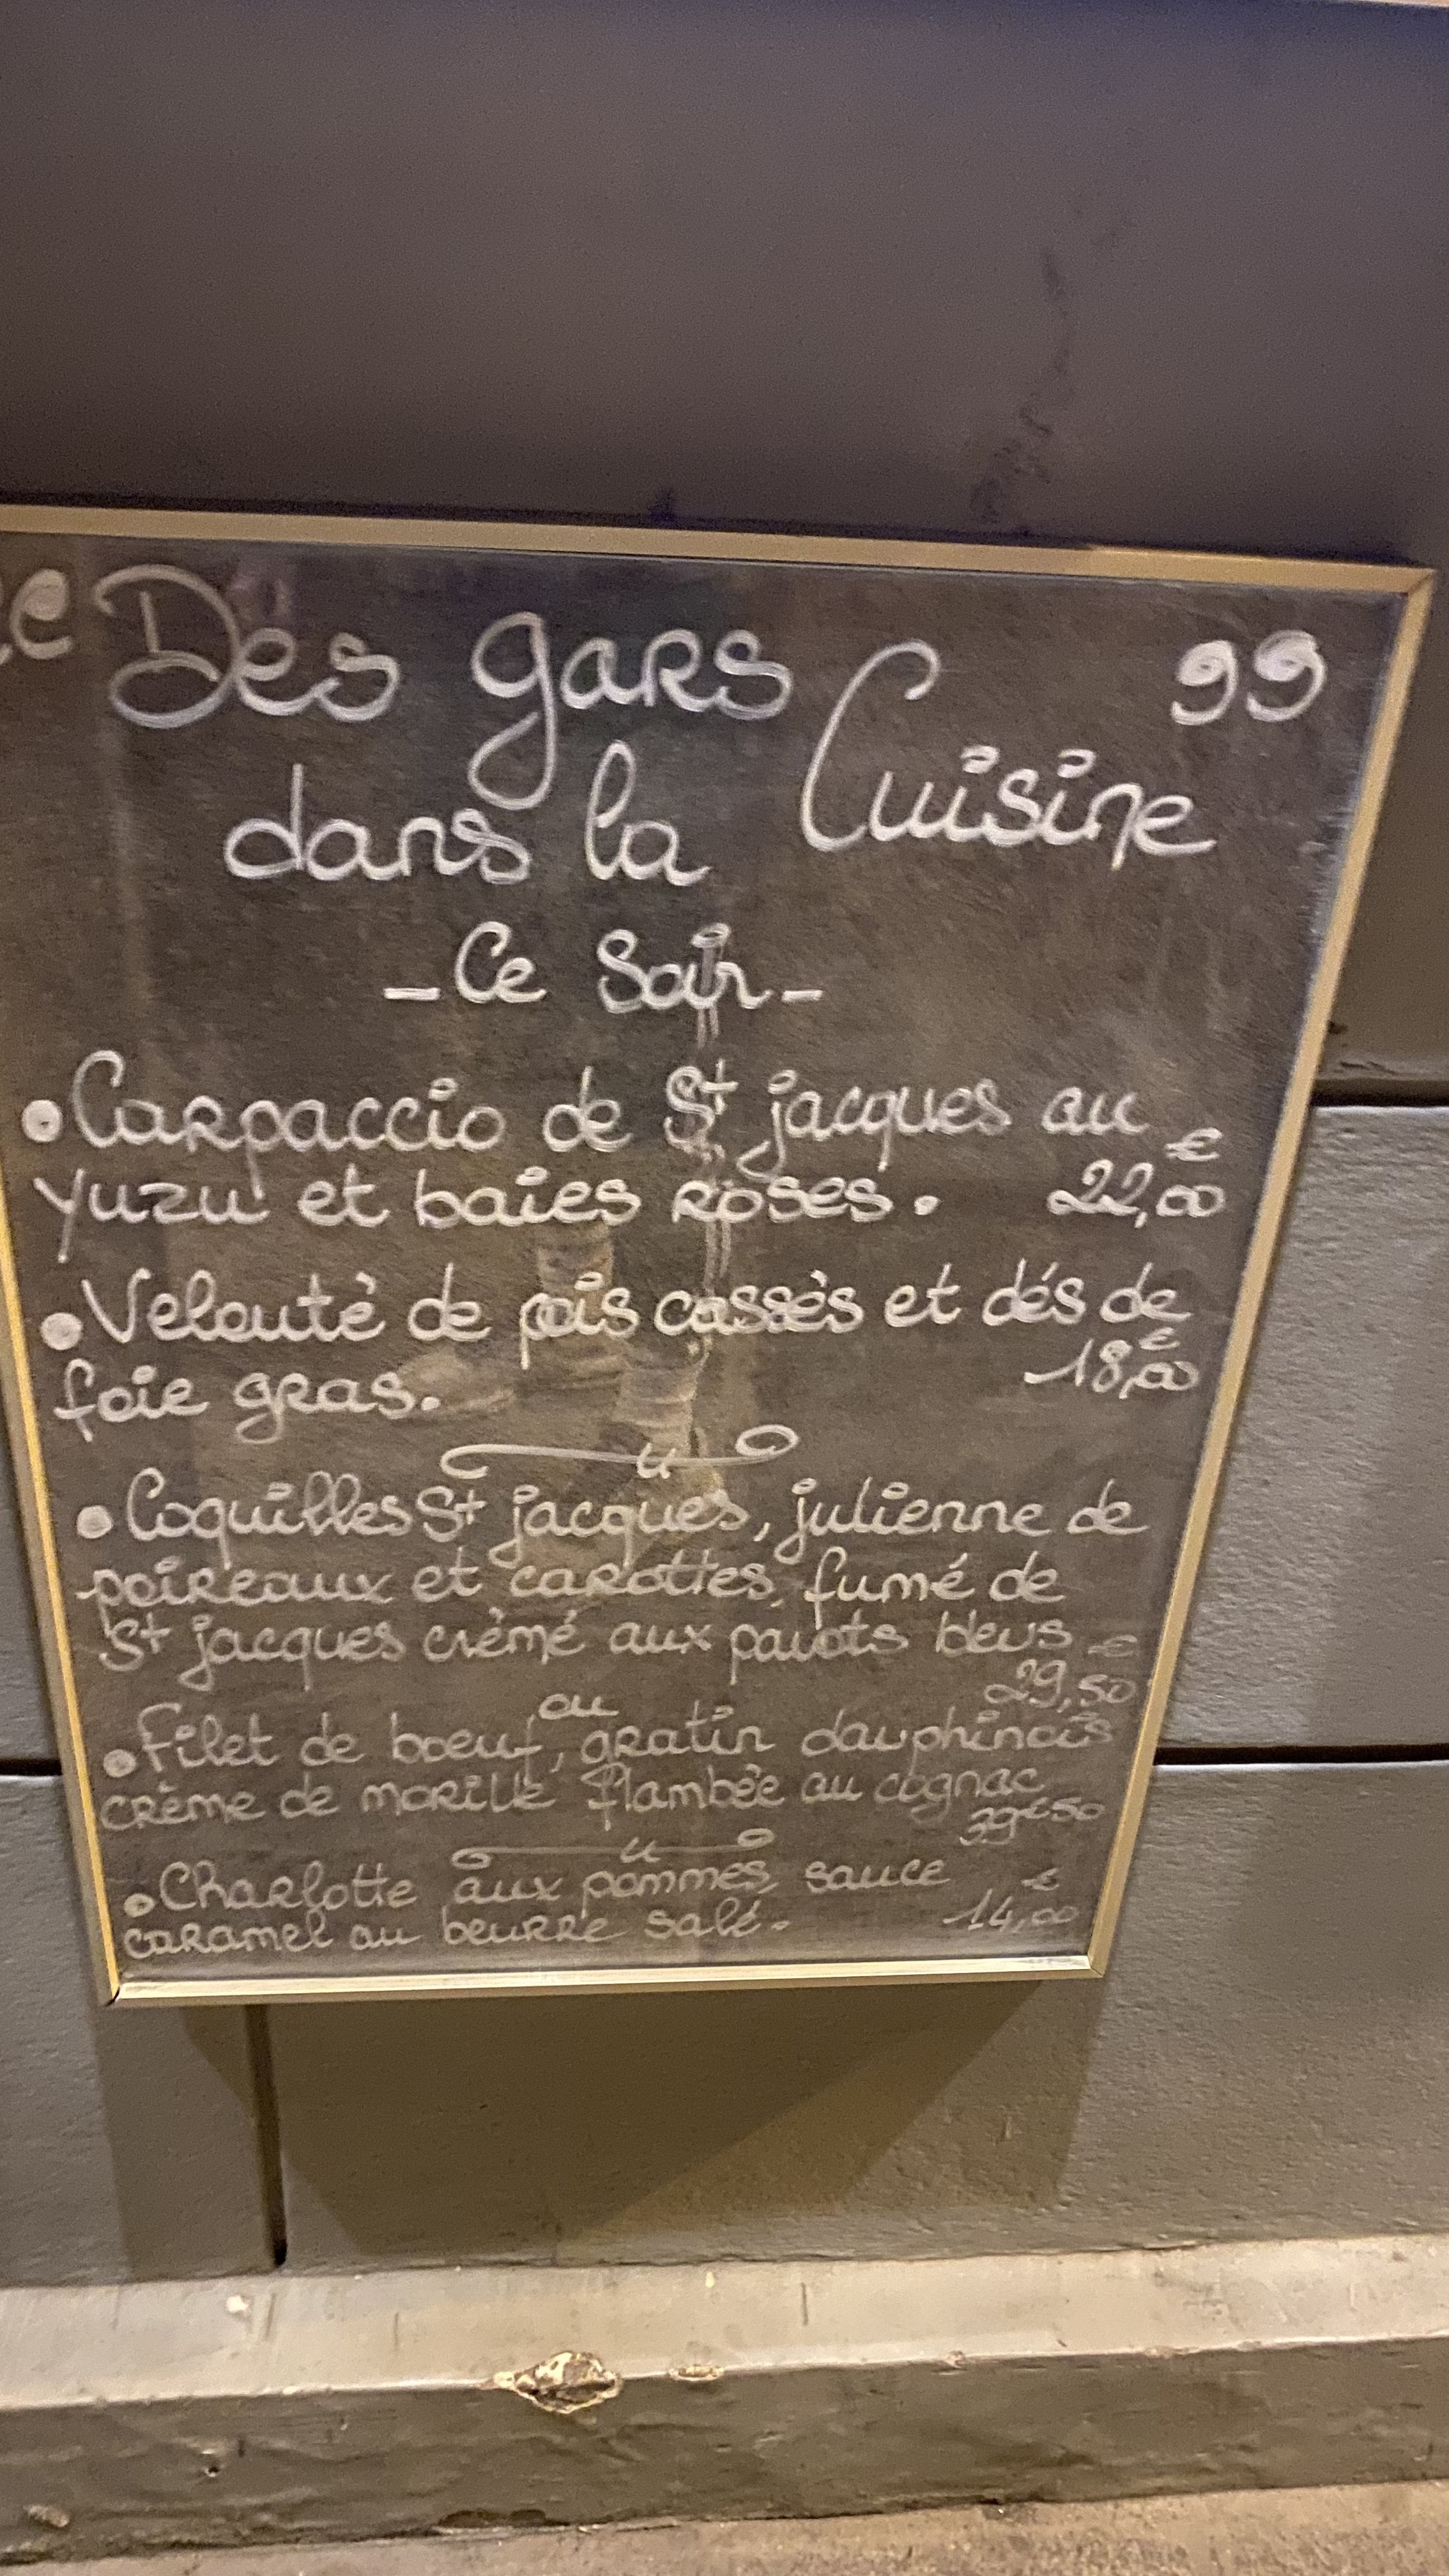 “ Des gars ”
dans la Cuisine
- Ce Soir -
• Carpaccio de St jacques au
yuzu et baies roses. 22,00 €
• Velouté de pois cassés et dés de
foie gras. 18,00 €
• Coquilles St jacques, julienne de
poireaux et carottes, fumé de
St jacques crèmé aux pavots bleus
29,50 €
ou
• Filet de boeuf, gratin dauphinois
crème de morille flambée au cognac
39€50
• Charlotte aux pommes, sauce
caramel au beurre salé. 14,00 €